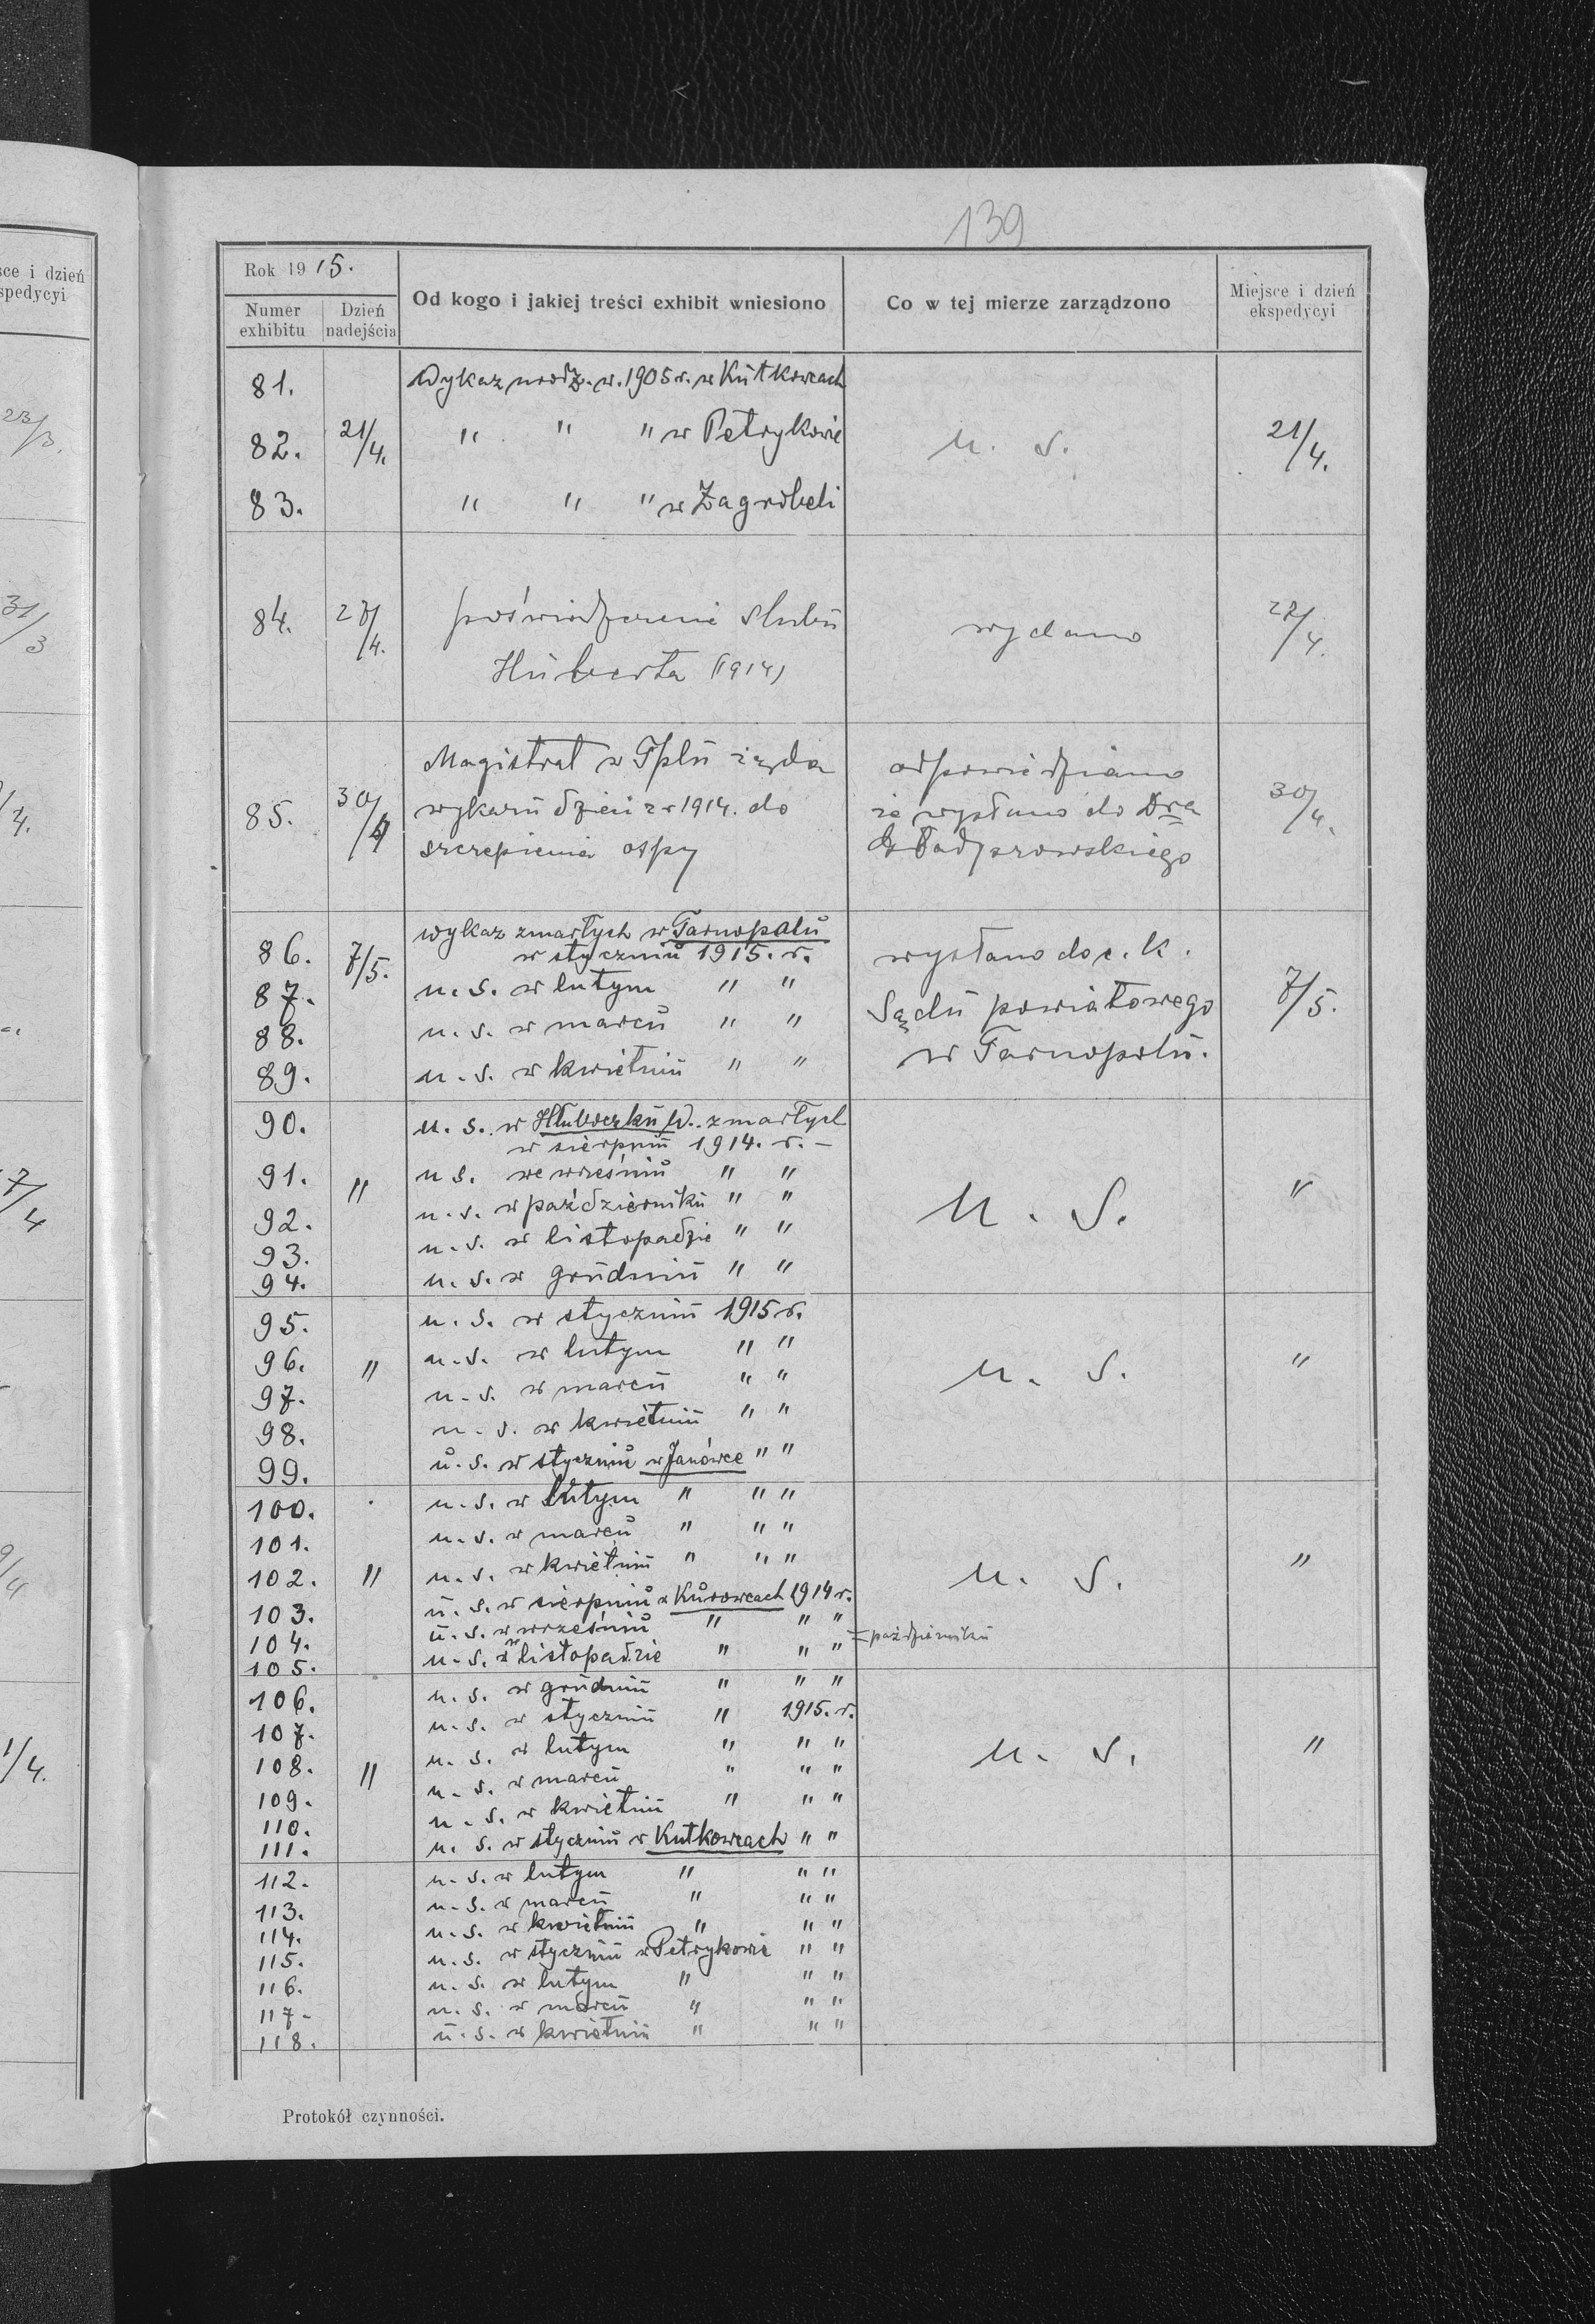 139
sce i dzień
spedycyi
23/3.
31/3
/4.
17/4
9/4
1/4.
Rok 1915.
Numer exhibitu
Dzień nadejścia
Od kogo i jakiej treści exhibit wniesiono
Co w tej mierze zarządzono
Miejsce i dzień ekspedycyi
81. Wykaz urodz. w. 1905 r. w Kutkowcach
82. 21/4. " " " w Petrykowie u. s. 21/4.
83. " " " w Zagrobeli
84. 27/4. poświadczenie ślubu wydano 27/4.
Huberta (1914)
Magistrat w Tplu żąda odpowiedziano
85. 30/4 wykazu dzieci z r 1914. do że wysłano do Dra 30/4.
szczepienia ospy
86. 7/5. wykaz zmarłych w Tarnopolu wysłano do c. k. 7/5.
w styczniu 1915. r.
87. u. s. w lutym " " Sądu powiatowego
88. u. s. w marcu " " w Tarnopolu.
89. u. s. w kwietniu " "
90. u. s. w Hłuboczku W. zmarłych
w sierpniu 1914. r. –
91. " u s. we wrześniu " " u. s. "
92. u. s. w październiku " "
93. u. s. w listopadzie " "
94. u. s. w grudniu " "
95. u. s. w styczniu 1915 r.
96. " u. s. w lutym " " u. s. "
97. u. s. w marcu " "
98. u. s. w kwietniu " "
99. u. s. w styczniu w Janówce " "
100. u. s. w lutym " " "
101. u. s. w marcu " " "
102. " u. s. w kwietniu " " " u. s. "
103. u. s. w sierpniu w Kurowcach 1914 r.
104. u. s. w wrześniu " " "
październiku
105. u. s. w listopadzie " " "
106. u. s. w grudniu " " "
107. u. s. w styczniu " 1915. r.
108. " u. s. w lutym " " " u. s. "
109. u. s. w marcu " " "
110. u. s. w kwietniu " " "
111. u. s. w styczniu w Kutkowcach " "
112. u. s. w lutym " " "
113. u. s. w marcu " " "
114. u. s. w kwietniu " " "
115. u. s. w styczniu w Petrykowie " "
116. u. s. w lutym " " "
117. u. s. w marcu " " "
118. u. s. w kwietniu " " "
Protokół czynności.